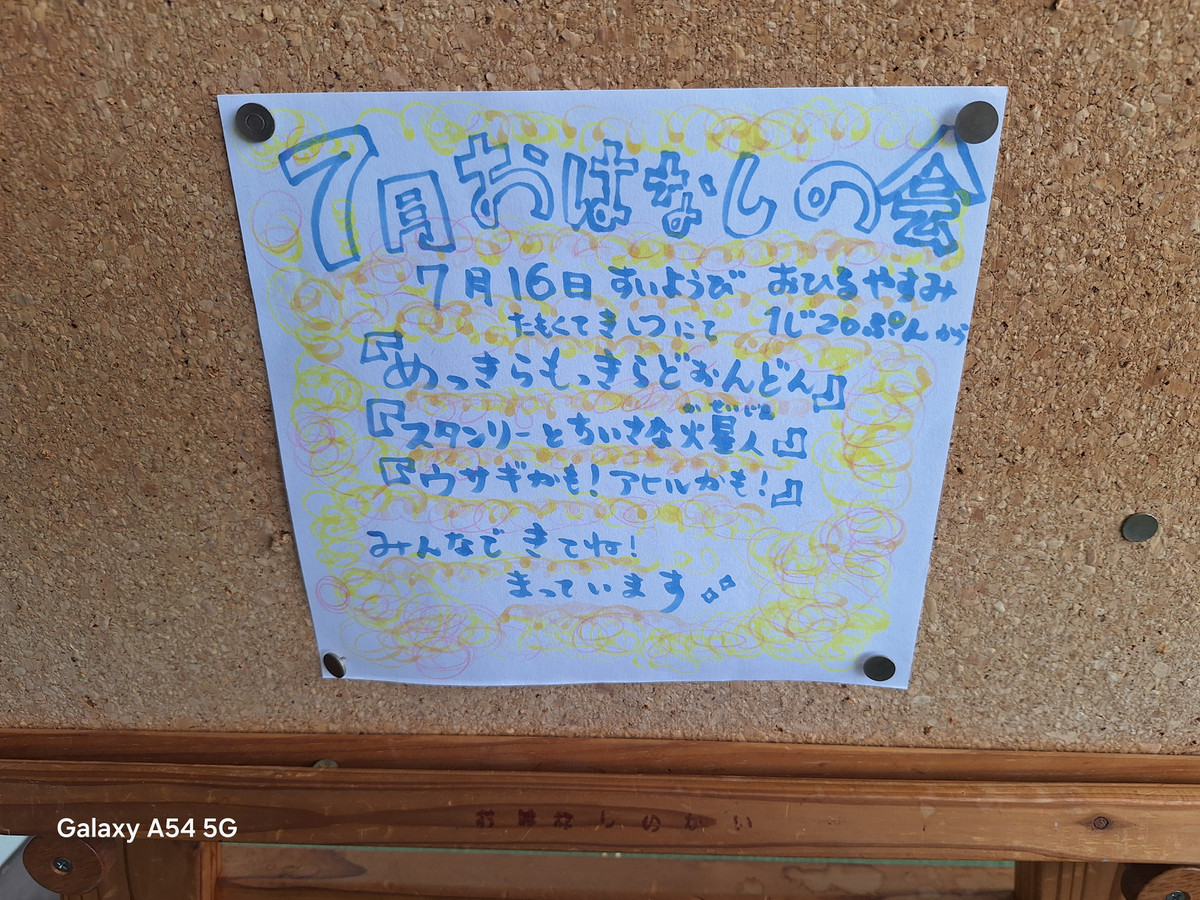 7月おはなしの会
7月16日 すいようび おひるやすみ
たもくてきしつにて 1じ20ぷんから
『めっきらもっきらどおんどん』
かせいじん
『スタンリーとちいさな火星人』
『ウサギかも!アヒルかも!』
みんなできてね!
まっています
おはなしのかい
Galaxy A54 5G